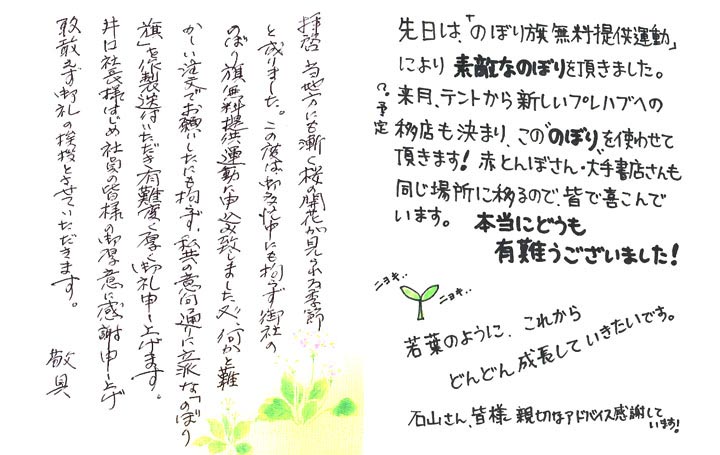 拝啓 当地方にも漸く桜の開花が見られる季節
と成りました。この度は御多忙中にも拘らず御社の
のぼり旗無料提供運動に申込み致しました処、何かと難
かしい注文でお願いしたにも拘らず、私共の意向通りに立派な「のぼり
旗」を作製送付いただき有難度く厚く御礼申し上げます。
井口社長様はじめ社員の皆様の御厚意に感謝申し上げ
取敢えず御礼の挨拶とさせていただきます。
敬具
先日は、「のぼり旗無料提供運動」
により 素敵なのぼりを頂きました。
来月、テントから新しいプレハブへの
?。予定
移店も決まり、この"のぼり"を使わせて
頂きます! 赤とんぼさん・大手書店さんも
同じ場所に移るので、皆で喜こんで
います。 本当にどうも
有難うございました!
ニョキ‥
ニョキ‥
若葉のように、これから
どんどん成長していきたいです。
石山さん、皆様 親切なアドバイス感謝して
います!